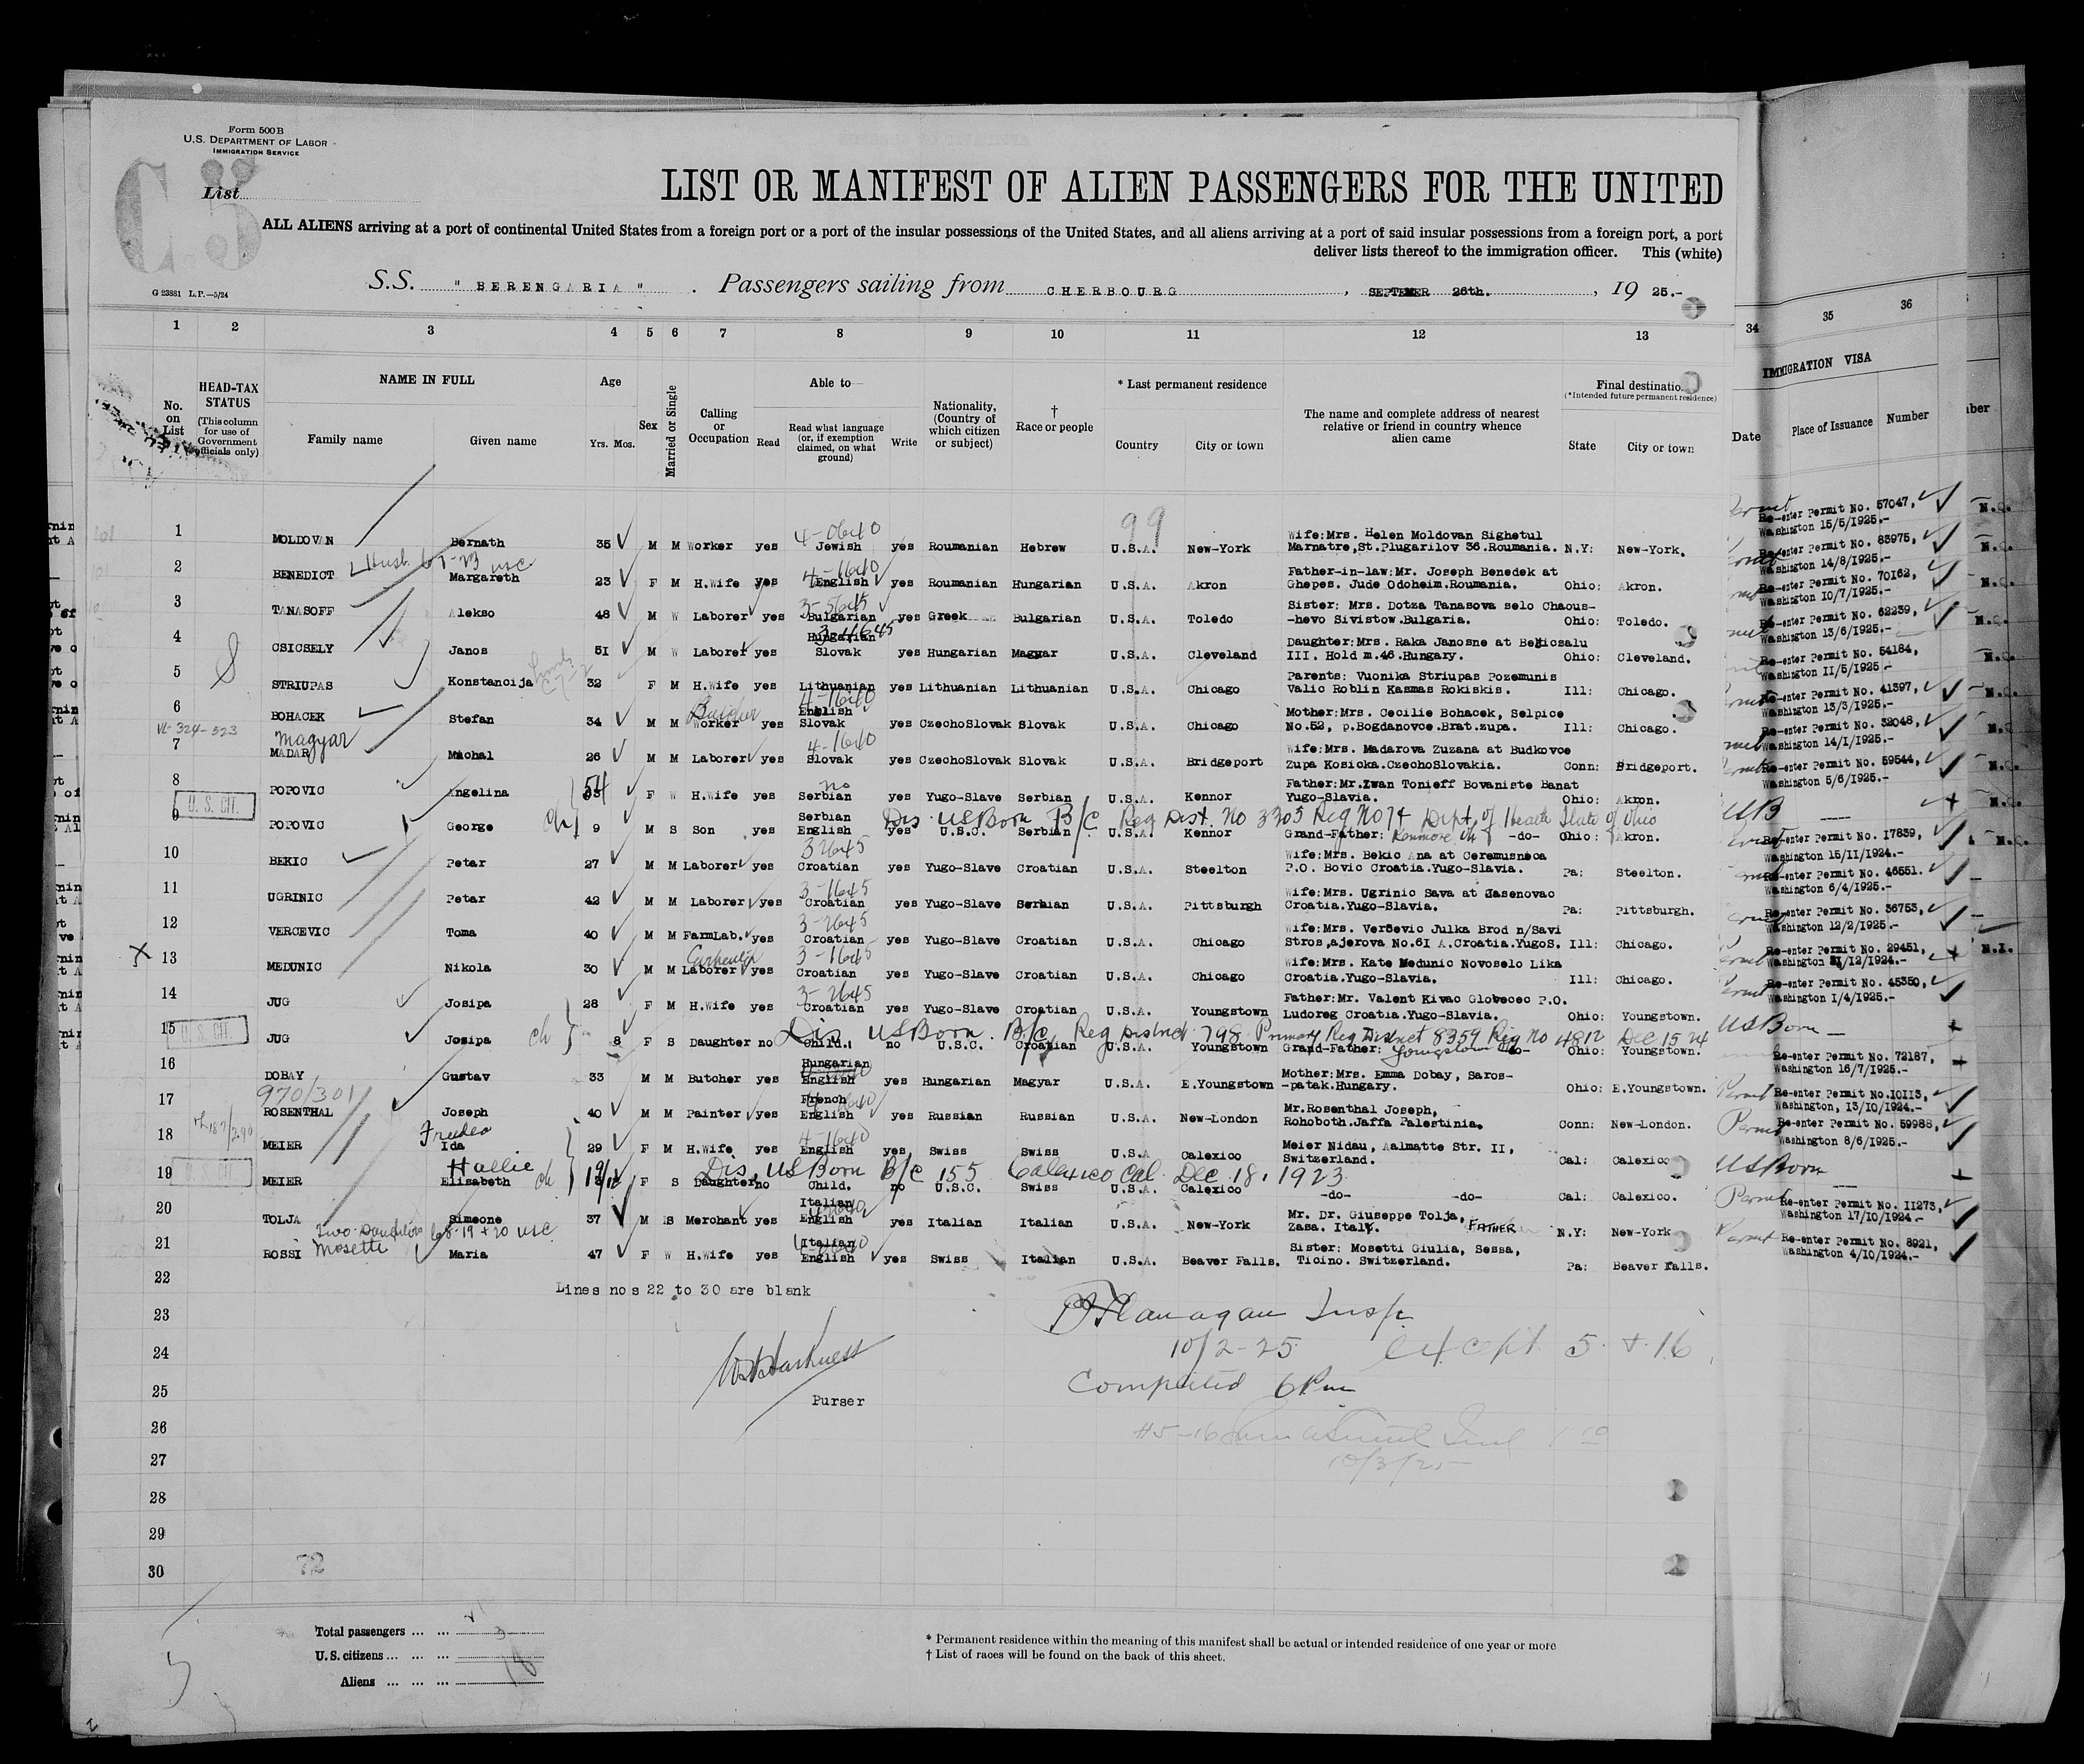 Form 500 B
U.S. DEPARTMENT OF LABOR
IMMIGRATION SERVICE
List
LIST OR MANIFEST OF ALIEN PASSENGERS FOR THE UNITED
ALL ALIENS arriving at a port of continental United States from a foreign port or a port of the insular possessions of the United States, and all aliens arriving at a port of said insular possessions from a foreign port, a port
deliver lists thereof to the immigration officer. This (white)
G 23881 L.P.—5/24
S.S. " BERENGARIA " . Passengers sailing from CHERBOURG , SEPTEMBER 26th. , 19 25.-
1 2 3 4 5 6 7 8 9 10 11 12 13 34 35 36
No. on List
HEAD-TAX STATUS
(This column for use of Government officials only)
NAME IN FULL
Family name Given name
Age
Yrs. Mos.
Sex
Married or Single
Calling or Occupation
Able to—
Read
Read what language (or, if exemption claimed, on what ground)
Write
Nationality, (Country of which citizen or subject)
† Race or people
* Last permanent residence
Country City or town
The name and complete address of nearest relative or friend in country whence alien came
Final destinatio
(*Intended future permanent residence)
State City or town
IMMIGRATION VISA
Date Place of Issuance Number
99
4-0640
1 MOLDOVAN Bernath 35 M M Worker yes Jewish yes Roumanian Hebrew U.S.A. New-York Wife:Mrs. Helen Moldovan Sighetul
Marnatre,St.Plugarilov 36.Roumania. N.Y: New-York. Re-enter Permit No. 57047,
Washington 15/5/1925.-
4-1640
2 BENEDICT Margareth 23 F M H.Wife yes English yes Roumanian Hungarian U.S.A. Akron Father-in-law:Mr. Joseph Benedek at
Ghepes. Jude Odoheim.Roumania. Ohio: Akron. Re-enter Permit No. 83975,
Washington 14/8/1925.-
3-5645
3 TANASOFF Alekso 48 M W Laborer yes Bulgarian yes Greek Bulgarian U.S.A. Toledo Sister: Mrs. Dotza Tanasova selo Chaous-
-hevo Sivistow.Bulgaria. Ohio: Toledo. Re-enter Permit No. 70162,
Washington 10/7/1925.-
4 CSICSELY Janos 51 M W Laborer yes Hungarian Slovak yes Hungarian Magyar U.S.A. Cleveland Daughter:Mrs. Raka Janosne at Bekicsalu
III. Hold m.46.Hungary. Ohio: Cleveland. Re-enter Permit No. 62239,
Washington 13/6/1925.-
5 STRIUPAS Konstancija 32 F M H.Wife yes Lithuanian yes Lithuanian Lithuanian U.S.A. Chicago Parents: Vuonika Striupas Pozemunis
Valic Roblin Kasmas Rokiskis. Ill: Chicago. Re-enter Permit No. 54184,
Washington 11/5/1925.-
4-1640
6 BOHACEK Stefan 34 M M Worker yes English Slovak yes CzechoSlovak Slovak U.S.A. Chicago Mother:Mrs. Cecilie Bohacek, Selpice
No.52, p.Bogdanovce.Brat.zupa. Ill: Chicago. Re-enter Permit No. 41397,
Washington 13/3/1925.-
VL-324-523
Magyar
4-1640
7 MADAR Michal 26 M M Laborer yes Slovak yes CzechoSlovak Slovak U.S.A. Bridgeport Wife:Mrs. Madarova Zuzana at Budkovce
Zupa Kosicka.CzechoSlovakia. Conn: Bridgeport. Re-enter Permit No. 32048,
Washington 14/1/1925.-
54 no
8 POPOVIC Angelina F W H.Wife yes Serbian yes Yugo-Slave Serbian U.S.A. Kennor Father:Mr.Zwan Tonieff Bovaniste Banat
Yugo-Slavia. Ohio: Akron. Re-enter Permit No. 59544,
Washington 5/6/1925.-
U. S. CIT.
Dis US Born B/C Reg Dist. No 3305 Reg No 74 Dept of Health State of Ohio USB
9 POPOVIC George ch 9 M S Son yes Serbian English yes U.S.C. Serbian U.S.A. Kennor Grand-Father: Kenmore -do- Ohio: Akron.
3 2645
10 BEKIC Petar 27 M M Laborer yes Croatian yes Yugo-Slave Croatian U.S.A. Steelton Wife:Mrs. Bekic Ana at Ceremusneca
P.O. Bovic Croatia.Yugo-Slavia. Pa: Steelton. Re-enter Permit No. 17839,
Washington 15/11/1924.-
3-1645
11 UGRINIC Petar 42 M M Laborer yes Croatian yes Yugo-Slave Serbian U.S.A. Pittsburgh Wife:Mrs. Ugrinic Sava at Jasenovac
Croatia.Yugo-Slavia. Pa: Pittsburgh. Re-enter Permit No. 46551.
Washington 6/4/1925.-
3-2645
12 VERCEVIC Toma 40 M M FarmLab. yes Croatian yes Yugo-Slave Croatian U.S.A. Chicago Wife:Mrs. Versevic Julka Brod n/Savi
Stros,ajerova No.61 A.Croatia.YugoS. Ill: Chicago. Re-enter Permit No. 36753,
Washington 12/2/1925.-
X Carpenter 3-1645
13 MEDUNIC Nikola 30 M M Laborer yes Croatian yes Yugo-Slave Croatian U.S.A. Chicago Wife:Mrs. Kate Medunic Novoselo Lika
Croatia.Yugo-Slavia. Ill: Chicago. Re-enter Permit No. 29451,
Washington 31/12/1924.- N.I.
3-2645
14 JUG Josipa 28 F M H.Wife yes Croatian yes Yugo-Slave Croatian U.S.A. Youngstown Father:Mr. Valent Kivac Globecec P.O.
Ludoreg Croatia.Yugo-Slavia. Ohio: Youngstown. Re-enter Permit No. 45350,
Washington 1/4/1925.-
U. S. CIT.
Dis US Born. B/C Reg District 798 Primary Reg District 8359 Reg No 4812 Dec 15 24 US Born
15 JUG Josipa ch 8 F S Daughter no Child. no U.S.C. Croatian U.S.A. Youngstown Grand-Father: Youngstown -do- Ohio: Youngstown.
16 DOBAY Gustav 33 M M Butcher yes Hungarian English yes Hungarian Magyar U.S.A. E.Youngstown Mother:Mrs. Emma Dobay, Saros-
-patak.Hungary. Ohio: E.Youngstown. Re-enter Permit No. 72187,
Washington 16/7/1925.-
970/301
17 ROSENTHAL Joseph 40 M M Painter yes French English yes Russian Russian U.S.A. New-London Mr.Rosenthal Joseph,
Rohoboth.Jaffa Palestinia. Conn: New-London. Permit Re-enter Permit No.10113,
Washington, 13/10/1924.-
Frieda
4-1640
18 MEIER Ida 29 F M H.Wife yes English yes Swiss Swiss U.S.A Calexico Meier Nidau, Aalmatte Str. II,
Switzerland. Cal: Calexico Permit Re-enter Permit No. 59988,
Washington 8/6/1925.-
Hallie Dis, US Born B/C 155 Calexico Cal Dec 18, 1923 US Born
19 MEIER Elisabeth ch F S Daughter no Child. no U.S.C. Swiss U.S.A. Calexico -do- -do- Cal: Calexico.
20 TOLJA Simeone 37 M S Merchant yes Italian English yes Italian Italian U.S.A. New-York Mr. Dr. Giuseppe Tolja, FATHER
Zasa. Italy. N.Y: New-York Permit Re-enter Permit No. 11273,
Washington 17/10/1924.-
Two Daughters 19 + 20 USC
Mosetti
21 ROSSI Maria 47 F W H.Wife yes Italian English yes Swiss Italian U.S.A. Beaver Falls. Sister: Mosetti Giulia, Sessa,
Ticino. Switzerland. Pa: Beaver Falls. Permit Re-enter Permit No. 8921,
Washington 4/10/1924.-
22
Lines nos 22 to 30 are blank
23
Flanagan Insp.
24
10/2-25 except 5 + 16
25
Completed 6 Pm
Purser
26
27
10/3/25
28
29
30
72
Total passengers ... ...
U.S. citizens ... ... ... 3
Aliens ... ... ... 18
* Permanent residence within the meaning of this manifest shall be actual or intended residence of one year or more
† List of races will be found on the back of this sheet.